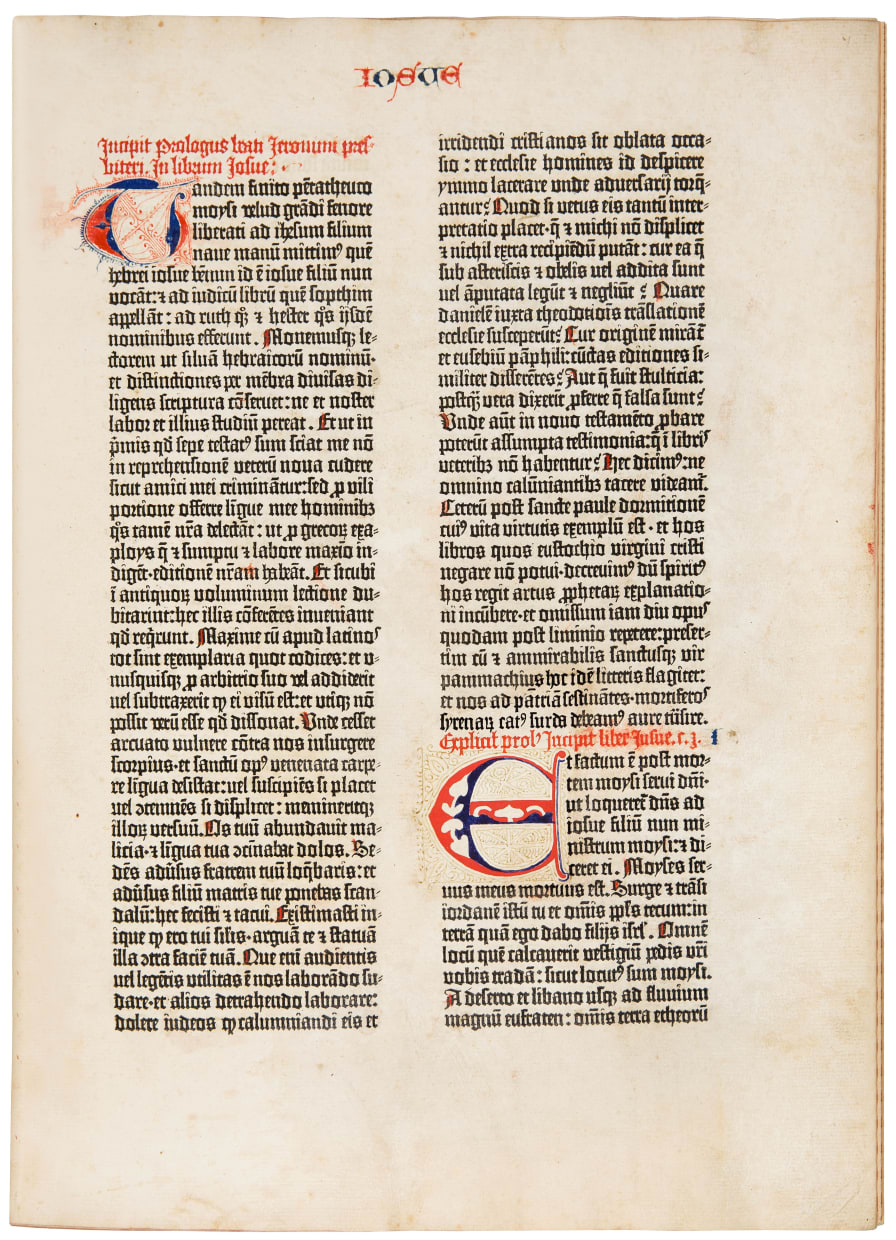 IOSUE
Incipit Prologus beati Jeronimi pres-
biteri. In librum Josue:
Tandem finito pētatheuco
moysi velud grādi fenore
liberati ad ihesum filium
naue manū mittimꝰ quē
hebrei iosue bennun id ē iosue filiū nun
vocāt: ⁊ ad iudicū librū quē sopthim
apellāt: ad ruth qꝫ ⁊ hester q̄s ijsdē
nominibus efferunt. Monemusqꝫ le-
ctorem ut siluā hebraicorū nominū·
et distinctiones per mēbra diuisas di-
ligens scriptura cōseruet: ne et noster
labor et illius studiū pereat. Et ut in
p̄mis qd̄ sepe testatꝰ sum sciat me nō
in reprehensionē veterū noua cudere
sicut amici mei criminātur: sed ꝓ uili
portione offerre līgue mee hominibꝫ
q̄s tamē nr̄a delectāt: ut ꝓ grecoꝝ exa-
ploys q̄ ⁊ sumptu ⁊ labore maxīo in-
digēt·editionē nr̄am habeāt. Et sicubi
ī antiquoꝝ voluminum lectione du-
bitarint: hec illis cōferētes inueniant
qd̄ req̄runt. Maxime cū apud latinos
tot sint exemplaria quot codices: et v-
nusquisqꝫ ꝓ arbitrio suo vel addiderit
uel subtraxerit qꝫ ei visū est: et utiqꝫ nō
possit verū esse qd̄ dissonat. Unde cesset
arcuato vulnere cōtra nos insurgere
scorpius·et sanctū opꝰ venenata carpe-
re līgua desistat: uel suscipiēs si placet
uel ↄtemnēs si displicet: memineritqꝫ
illoꝝ versuū. Os tuū abundauit ma-
licia·⁊ līgua tua ↄcīnabat dolos. Se-
dēs aduersus fratrem tuū loq̄baris: et
aduersus filiū matris tue ponebas scan-
dalū: hec fecisti ⁊ tacui. Existimasti in-
ique qꝫ ero tui silis·arguā te ⁊ statuā
illa ↄtra faciē tuā. Que enī audientis
uel legētis utilitas ē nos laborādo su-
dare·et alios detrahendo laborare:
dolere iudeos qꝫ calumniandi eis et
irridendi cristianos sit oblata occa-
sio: et ecclesie homines id despicere
ymmo lacerare unde aduersarij torq̄-
antur? Quod si vetus eis tantū inter-
pretatio placet·q̄ ⁊ michi nō displicet
⁊ nichil extra recipiēdū putāt: cur ea q̄
sub asteriscis ⁊ obelis uel addita sunt
uel āputata legūt ⁊ negliūt? Quare
danielē iuxta theodotiōis trāslationē
ecclesie susceperūt? Cur originē mirāt̄
et eusebiū pāphili: cūctas editiones si-
militer differētes? Aut q̄ fuit stulticia:
postqꝫ vera dixerit ꝓferre q̄ falsa sunt?
Unde aūt in nouo testamēto ꝓbare
poterūt assumpta testimonia: q̄ ī libris
veteribꝫ nō habentur? Hec dicimꝰ: ne
omnino calūniantibꝫ tacere videant̄.
Ceterū post sancte paule dormitionē
cuiꝰ vita virtutis exemplū est·et hos
libros quos eustochio virgini cristi
negare nō potui·decreuimꝰ dū spiritꝰ
hos regit artus ꝓphetaꝝ explanatio-
ni incūbere·et omissum iam diu opus
quodam post liminio repetere: preser-
tim cū ⁊ ammirabilis sanctusqꝫ vir
pammachius hoc idē litteris flagitet:
et nos ad pātriā festināes·mortiferos
syrenaꝝ catꝰ surda debeamꝰ aure trāsire.
Explicit prolꝰ Incipit liber Josue. c. j.
Et factum ē post mor-
tem moysi serui dn̄i·
ut loqueret̄ dn̄s ad
iosue filiū nun mi-
nistrum moysi: ⁊ di-
ceret ei. Moyses ser-
uus meus mortuus est. Surge ⁊ trāsi
iordanē istū tu et om̄is ppl̄s tecum: in
terrā quā ego dabo filijs isrl̄. Omnē
locū quē calcauerit vestigiū pedis vr̄i
vobis tradā: sicut locutꝰ sum moysi.
A deserto et libano usqꝫ ad fluuium
magnū eufraten: om̄is terra etheorū